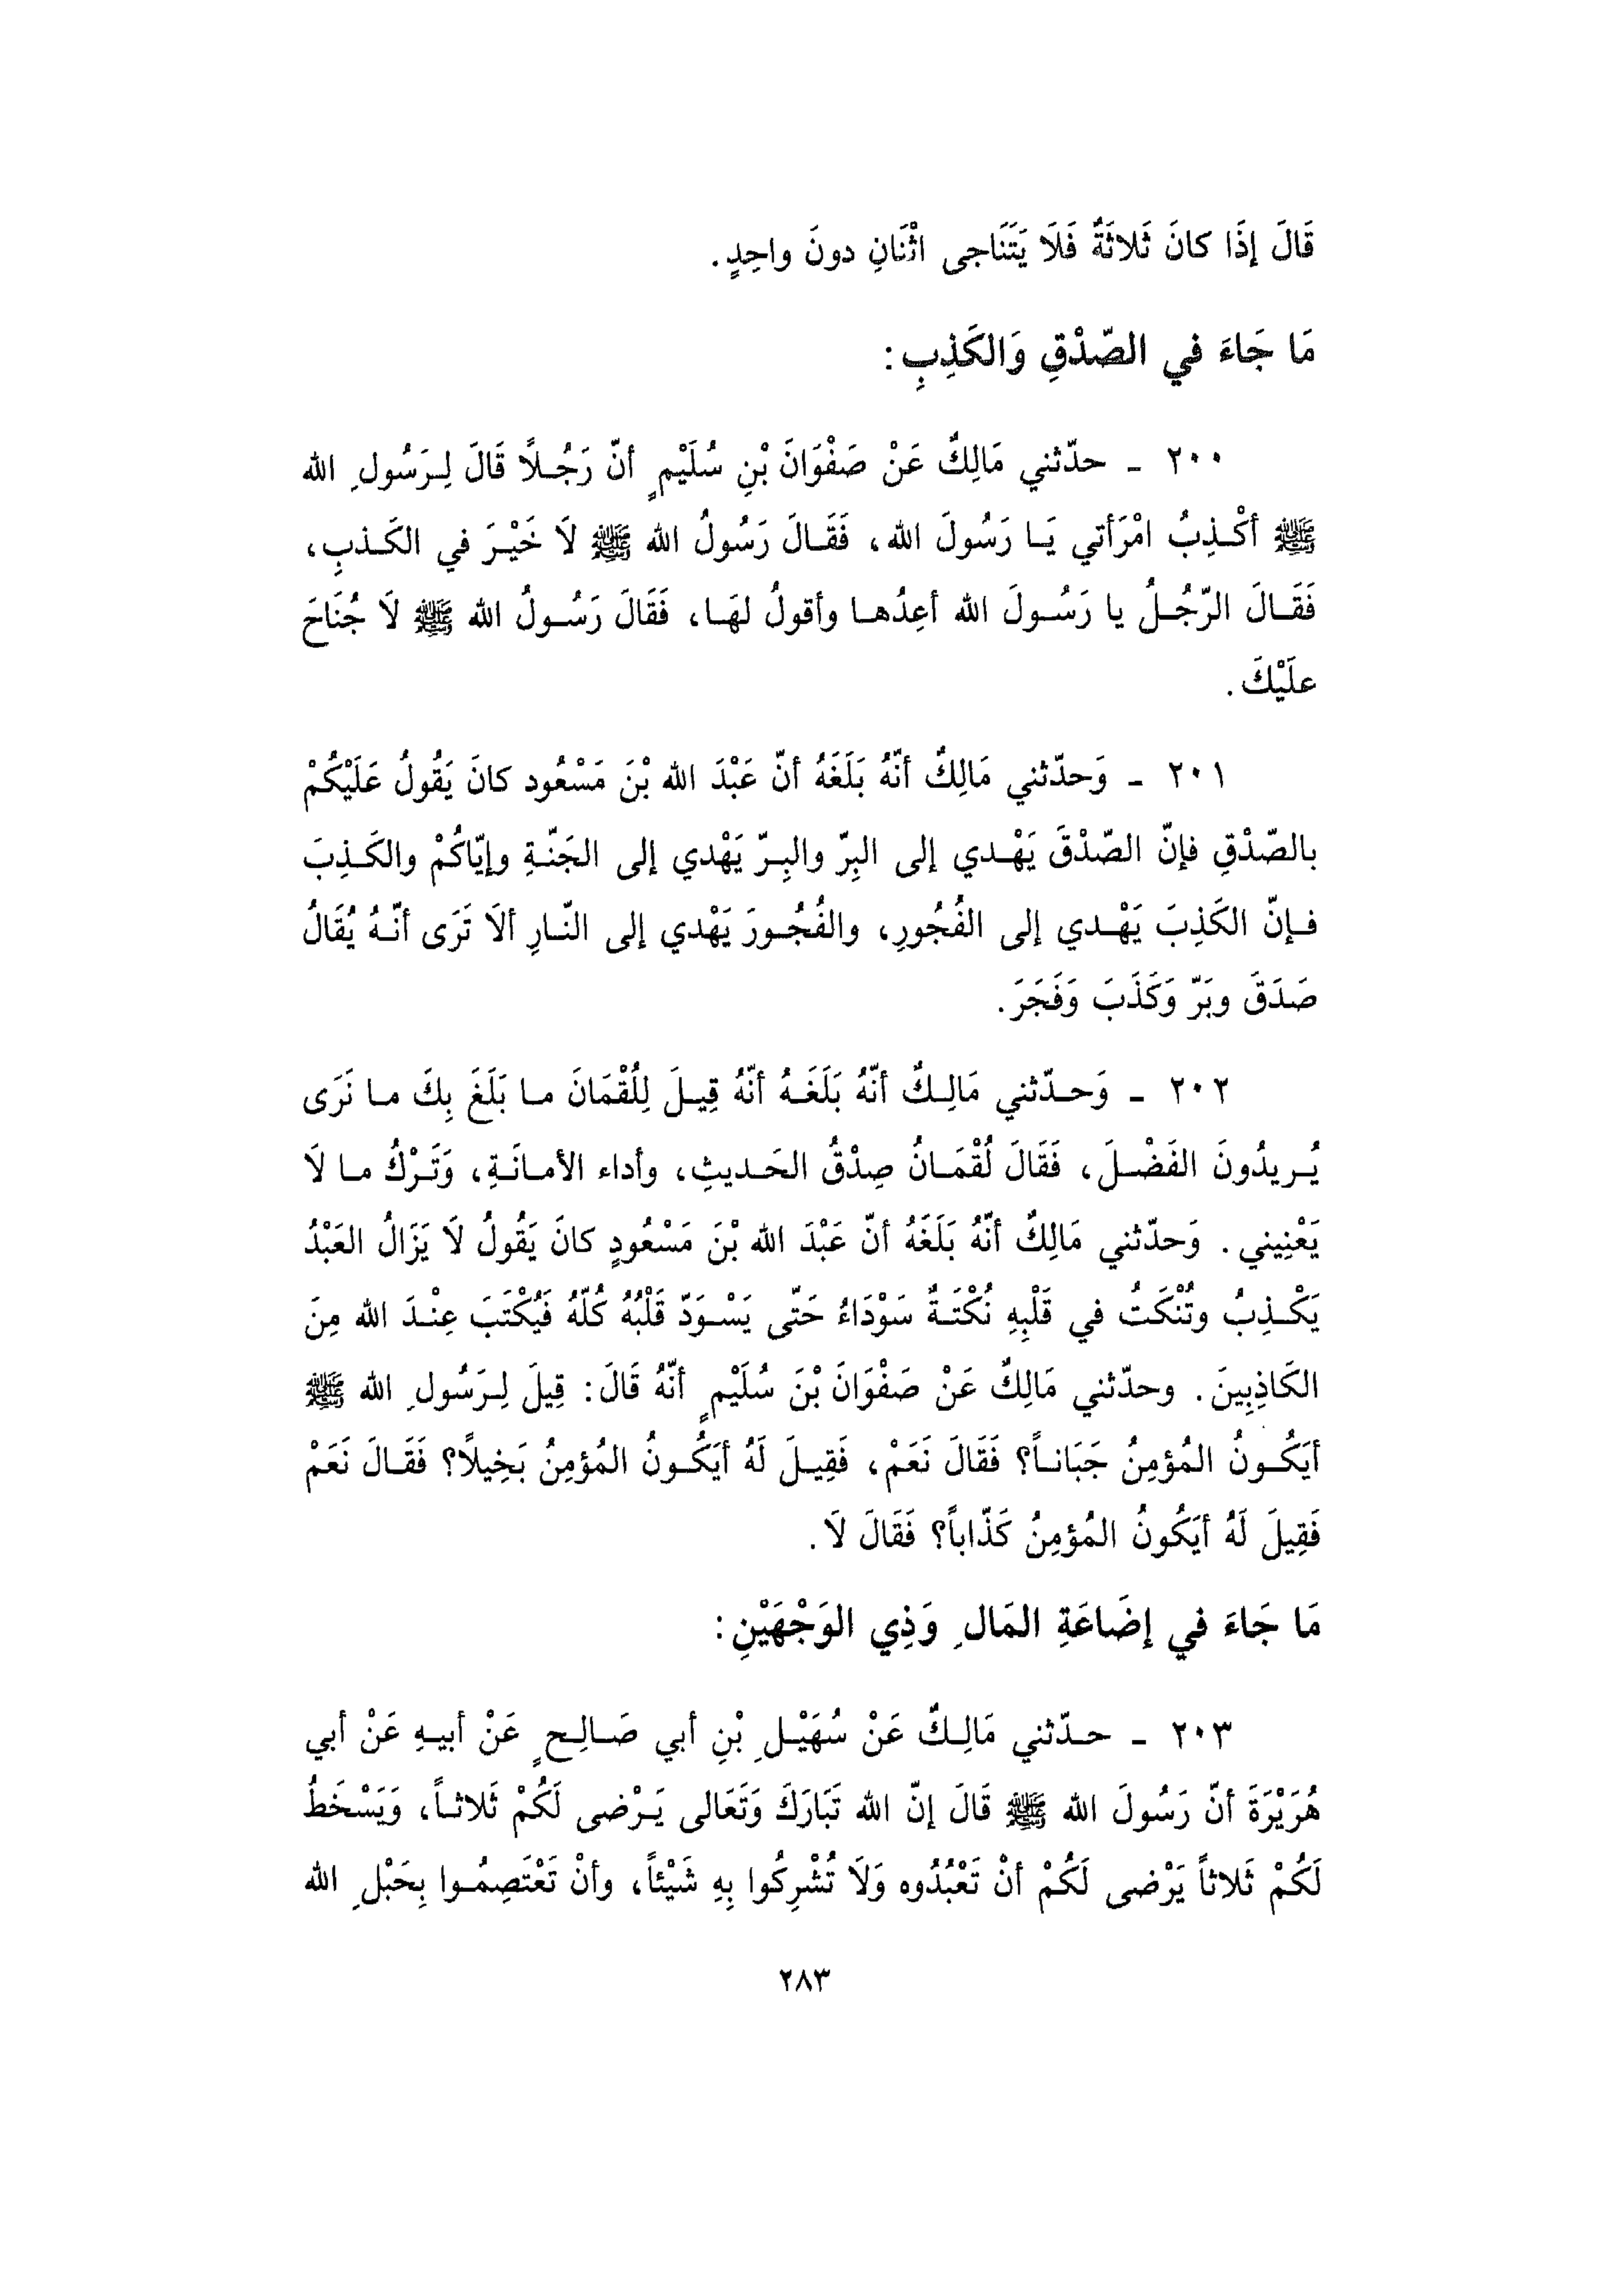 قَالَ إِذَا كانَ ثَلاثَةٌ فَلَا يَتَنَاجى اثْنَانِ دونَ واحِدٍ.
مَا جَاءَ في الصّدْقِ وَالكَذِبِ:
٢٠٠ ـ حدّثني مَالِكٌ عَنْ صَفْوَانَ بْنِ سُلَيْمٍ أنّ رَجُلاً قَالَ لِرَسُولِ الله
ﷺ أكْذِبُ امْرَأتي يَا رَسُولَ الله، فَقَالَ رَسُولُ الله ﷺ لَا خَيْرَ في الكَذبِ،
فَقَالَ الرّجُلُ يا رَسُولَ الله أعِدُها وأقولُ لهَا، فَقَالَ رَسُولُ الله ﷺ لَا جُنَاحَ
علَيْكَ.
٢٠١ ـ وَحدّثني مَالِكٌ أنّهُ بَلَغَهُ أنّ عَبْدَ الله بْنَ مَسْعُود كانَ يَقُولُ عَلَيْكُمْ
بالصّدْقِ فإنّ الصّدْقَ يَهْدي إلى البِرّ والبِرّ يَهْدي إلى الجَنّةِ وإيّاكُمْ والكَذِبَ
فإنّ الكَذِبَ يَهْدي إلى الفُجُورِ، والفُجُورَ يَهْدي إلى النّارِ ألَا تَرَى أنّهُ يُقَالُ
صَدَقَ وبَرّ وَكَذَبَ وَفَجَرَ.
٢٠٢ ـ وَحدّثني مَالِكٌ أنّهُ بَلَغَهُ أنّهُ قِيلَ لِلُقْمَانَ ما بَلَغَ بِكَ ما نَرَى
يُريدُونَ الفَضْلَ، فَقَالَ لُقْمَانُ صِدْقُ الحَديثِ، وأداء الأمانَةِ، وَتَرْكُ ما لَا
يَعْنِيني. وَحدّثني مَالِكٌ أنّهُ بَلَغَهُ أنّ عَبْدَ الله بْنَ مَسْعُودٍ كانَ يَقُولُ لَا يَزَالُ العَبْدُ
يَكْذِبُ وتُنْكَتُ في قَلْبِهِ نُكْتَةٌ سَوْدَاءُ حَتّى يَسْوَدّ قَلْبُهُ كُلّهُ فَيُكْتَبَ عِنْدَ الله مِنَ
الكَاذِبِينَ. وحدّثني مَالِكٌ عَنْ صَفْوَانَ بْنَ سُلَيْمٍ أنّهُ قَالَ: قِيلَ لِرَسُولِ الله ﷺ
أيَكُونُ المُؤمِنُ جَبَاناً؟ فَقَالَ نَعَمْ، فَقِيلَ لَهُ أيَكُونُ المُؤمِنُ بَخِيلاً؟ فَقَالَ نَعَمْ
فَقِيلَ لَهُ أيَكُونُ المُؤمِنُ كَذّاباً؟ فَقَالَ لَا.
مَا جَاءَ في إضَاعَةِ المَالِ وَذِي الوَجْهَيْنِ:
٢٠٣ ـ حدّثني مَالِكٌ عَنْ سُهَيْلِ بْنِ أبي صَالِحٍ عَنْ أبيهِ عَنْ أبي
هُرَيْرَةَ أنّ رَسُولَ الله ﷺ قَالَ إنّ الله تَبَارَكَ وَتَعَالى يَرْضى لَكُمْ ثَلاثاً، وَيَسْخَطُ
لَكُمْ ثَلاثاً يَرْضى لَكُمْ أنْ تَعْبُدُوه وَلَا تُشْرِكُوا بِهِ شَيْئاً، وأنْ تَعْتَصِمُوا بِحَبْلِ الله
٢٨٣